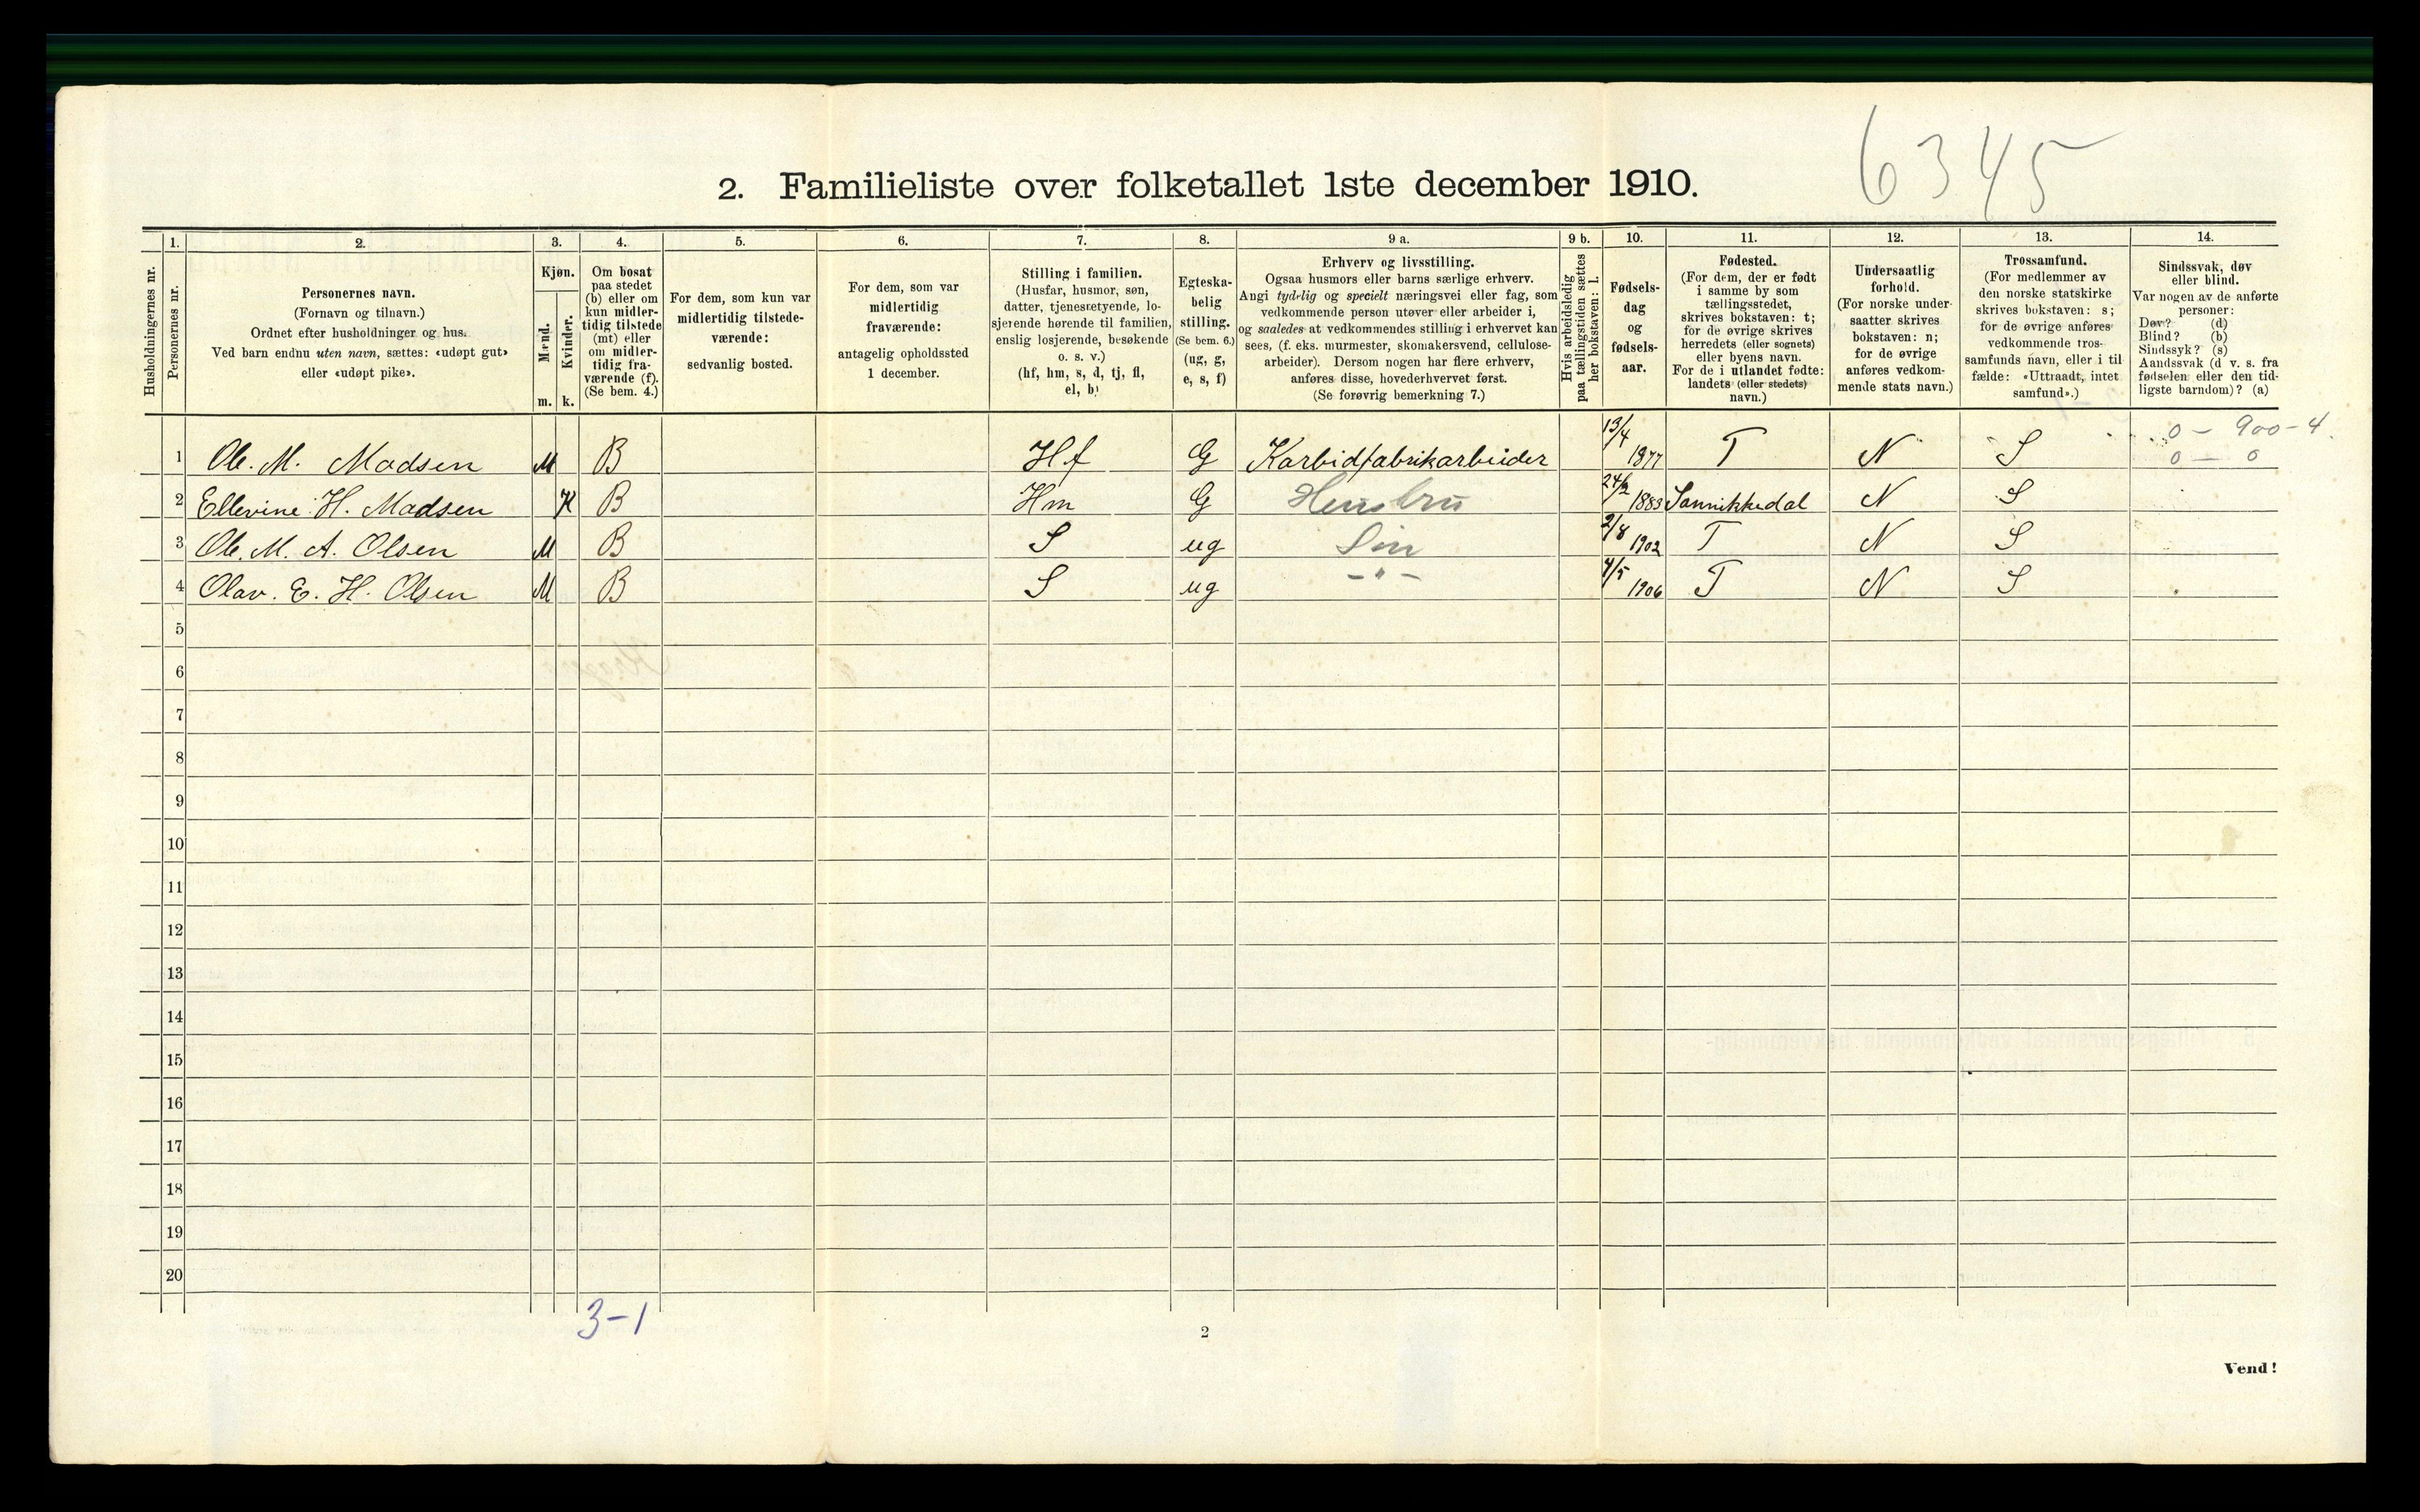 6345
2. Familieliste over folketallet 1ste december 1910.
Husholdningernes nr.
1.
Personernes nr.
2.
Personernes navn.
(Fornavn og tilnavn.)
Ordnet efter husholdninger og hus.
Ved barn endnu uten navn, sættes: «udøpt gut»
eller «udøpt pike».
3.
Kjøn.
Mænd.
Kvinder.
m. k.
4.
Om bosat
paa stedet
(b) eller om
kun midler-
tidig tilstede
(mt) eller
om midler-
tidig fra-
værende (f).
(Se bem. 4.)
5.
For dem, som kun var
midlertidig tilstede-
værende:
sedvanlig bosted.
6.
For dem, som var
midlertidig
fraværende:
antagelig opholdssted
1 december.
7.
Stilling i familien.
(Husfar, husmor, søn,
datter, tjenestetyende, lo-
sjerende hørende til familien,
enslig losjerende, besøkende
o. s. v.)
(hf, hm, s, d, tj, fl,
el, b)
8.
Egteska-
belig
stilling.
(Se bem. 6.)
(ug, g,
e, s, f)
9 a.
Erhverv og livsstilling.
Ogsaa husmors eller barns særlige erhverv.
Angi tydelig og specielt næringsvei eller fag, som
vedkommende person utøver eller arbeider i,
og saaledes at vedkommendes stilling i erhvervet kan
sees, (f. eks. murmester, skomakersvend, cellulose-
arbeider). Dersom nogen har flere erhverv,
anføres disse, hovederhvervet først.
(Se forøvrig bemerkning 7.)
9 b.
Hvis arbeidsledig
paa tællingstiden sættes
her bokstaven: l.
10.
Fødsels-
dag
og
fødsels-
aar.
11.
Fødested.
(For dem, der er født
i samme by som
tællingsstedet,
skrives bokstaven: t;
for de øvrige skrives
herredets (eller sognets)
eller byens navn.
For de i utlandet fødte:
landets (eller stedets)
navn.)
12.
Undersaatlig
forhold.
(For norske under-
saatter skrives
bokstaven: n;
for de øvrige
anføres vedkom-
mende stats navn.)
13.
Trossamfund.
(For medlemmer av
den norske statskirke
skrives bokstaven: s;
for de øvrige anføres
vedkommende tros-
samfunds navn, eller i til
fælde: «Uttraadt, intet
samfund».)
14.
Sindssvak, døv
eller blind.
Var nogen av de anførte
personer:
Døv? (d)
Blind? (b)
Sindssyk? (s)
Aandssvak (d v. s. fra
fødselen eller den tid-
ligste barndom)? (a)
0 — 900 - 4.
0 — 0
1 Ole. M. Madsen M B Hf G Karbidfabrikarbeider 13/4 1877 T N S
2 Ellevine H. Madsen K B Hm G Hustru 24/2 1883 Sannikkedal N S
3 Ole. M. A. Olsen M B S ug Søn 2/8 1902 T N S
4 Olav. E. H. Olsen M B S ug -"- 4/5 1906 T N S
5
6
7
8
9
10
11
12
13
14
15
16
17
18
19
20
3-1
2
Vend!